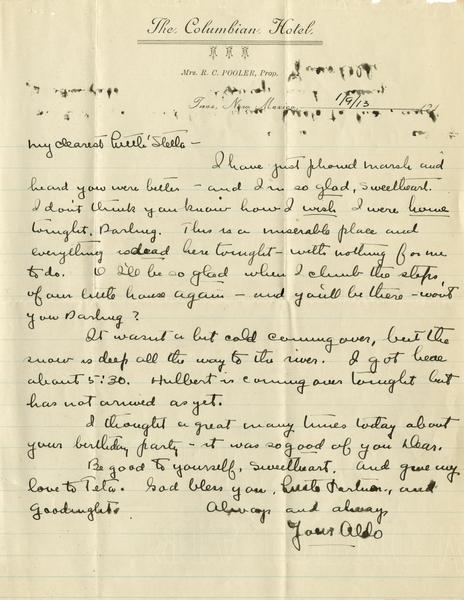 The Columbian Hotel.
Mrs. R. C. POOLER, Prop.
Taos, New Mexico, 1/9/13 191
My dearest little Stella -
I have just phoned Marsh and
heard you were better - and I'm so glad, sweetheart.
I don't think you know how I wish I were home
tonight, Darling. This is a miserable place and
everything is dead here tonight - with nothing for me
to do. O I'll be so glad when I climb the steps
of our little house again - and you'll be there - won't
you Darling?
It wasn't a bit cold coming over, but the
snow is deep all the way to the river. I got here
about 5:30. Hulbert is coming over tonight but
has not arrived as yet.
I thought a great many times today about
your birthday party - it was so good of you Dear.
Be good to yourself, sweetheart. And give my
love to Teta. God bless you, little Partner, and
Goodnight. Always and always
Your Aldo